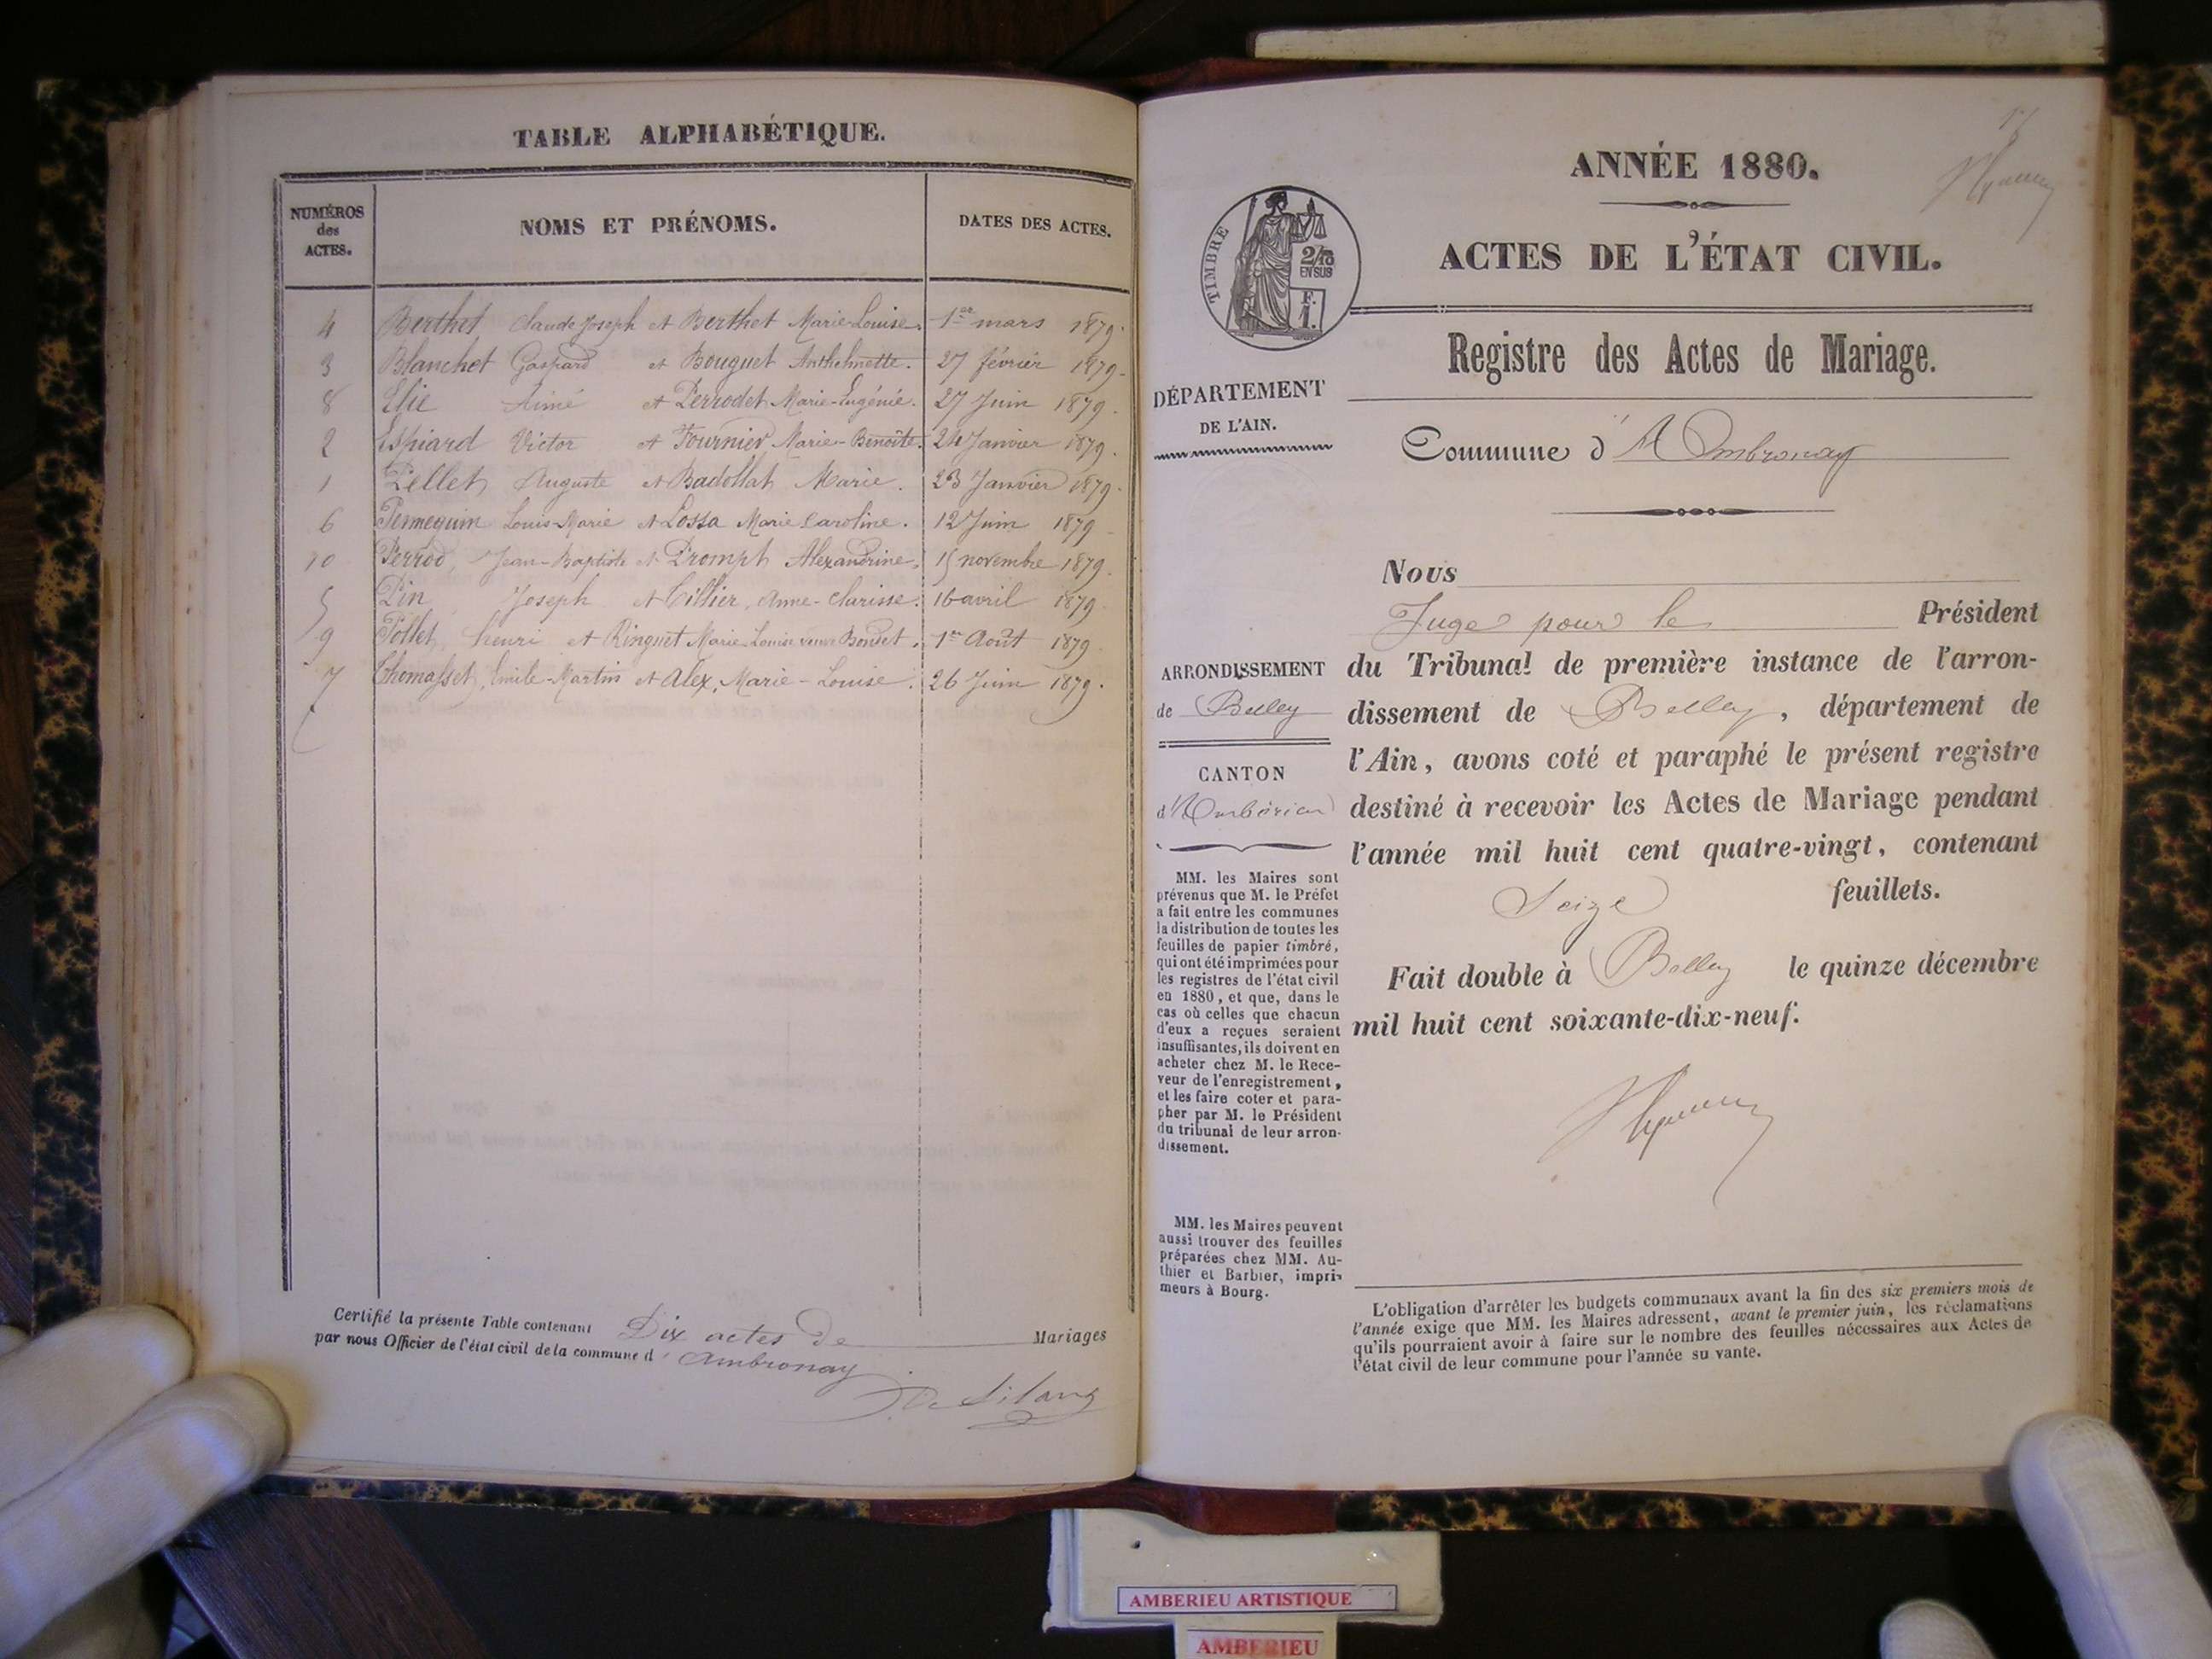 TABLE ALPHABÉTIQUE.
NUMÉROS des ACTES.
NOMS ET PRÉNOMS.
DATES DES ACTES.
4 Berthet Claude Joseph et Berthet Marie-Louise. 1er mars 1879.
3 Blanchet Gaspard et Bouquet Anthelmette. 27 février 1879.
8 Elie Aimé et Perrodet Marie-Eugénie. 27 Juin 1879.
2 Espiard Victor et Fournier Marie-Benoîte. 24 Janvier 1879.
1 Pellet Auguste et Badollat Marie. 23 Janvier 1879.
6 Louis-Marie et Lossa Marie Caroline. 12 Juin 1879
10 Perrod, Jean-Baptiste et Prompt Alexandrine. 15 novembre 1879.
5 Pin Joseph et Anne-Clarisse. 16 avril 1879.
9 Pollet, henri et Ringuet Marie Louise veuve Bondet. 1er Août 1879
7 Thomasset, Emile-Martin et Alex, Marie-Louise. 26 Juin 1879.
Certifié la présente Table contenant Dix actes de Mariages
par nous Officier de l'état civil de la commune d' Ambronay.
ANNÉE 1880.
ACTES DE L'ÉTAT CIVIL.
TIMBRE
2/10
EN SUS
F.
1.
Registre des Actes de Mariage.
DÉPARTEMENT
DE L'AIN.
Commune d'Ambronay
Nous
Juge pour le Président
du Tribunal de première instance de l'arron-
dissement de Belley, département de
l'Ain, avons coté et paraphé le présent registre
destiné à recevoir les Actes de Mariage pendant
l'année mil huit cent quatre-vingt, contenant
Seize feuillets.
Fait double à Belley le quinze décembre
mil huit cent soixante-dix-neuf.
ARRONDISSEMENT
de Belley
CANTON
d'Ambérieu
MM. les Maires sont
prévenus que M. le Préfet
a fait entre les communes
la distribution de toutes les
feuilles de papier timbré,
qui ont été imprimées pour
les registres de l'état civil
en 1880, et que, dans le
cas où celles que chacun
d'eux a reçues seraient
insuffisantes, ils doivent en
acheter chez M. le Rece-
veur de l'enregistrement,
et les faire coter et para-
pher par M. le Président
du tribunal de leur arron-
dissement.
MM. les Maires peuvent
aussi trouver des feuilles
préparées chez MM. Au-
thier et Barbier, impri-
meurs à Bourg.
L'obligation d'arrêter les budgets communaux avant la fin des six premiers mois de
l'année exige que MM. les Maires adressent, avant le premier juin, les réclamations
qu'ils pourraient avoir à faire sur le nombre des feuilles nécessaires aux Actes de
l'état civil de leur commune pour l'année su vante.
AMBERIEU ARTISTIQUE
AMBERIEU